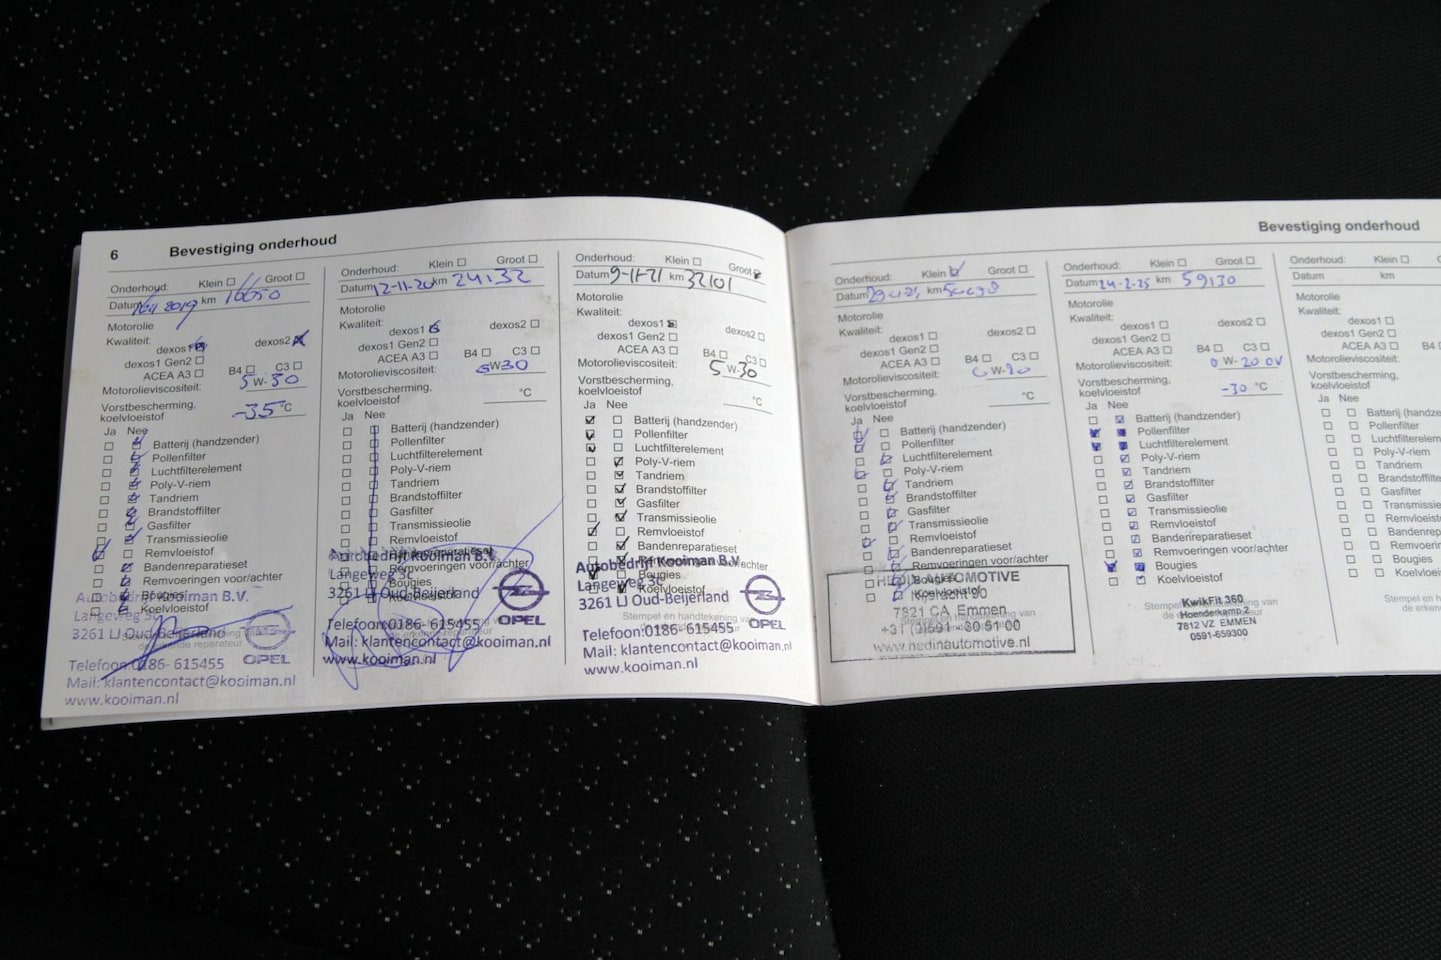 6 Bevestiging onderhoud
Onderhoud: Klein Groot
Datum 2019 km 16650
Motorolie
Kwaliteit:
dexos1 dexos2
dexos1 Gen2
ACEA A3 B4 C3
Motorolieviscositeit: 5 W-30
Vorstbescherming,
koelvloeistof -35 °C
Ja Nee
Batterij (handzender)
Pollenfilter
Luchtfilterelement
Poly-V-riem
Tandriem
Brandstoffilter
Gasfilter
Transmissieolie
Remvloeistof
Bandenreparatieset
Remvoeringen voor/achter
Bougies
Koelvloeistof
Autobedrijf Kooiman B.V.
Langeweg 3c
3261 LJ Oud-Beijerland
OPEL
Telefoon:0186- 615455
Mail: klantencontact@kooiman.nl
www.kooiman.nl
Onderhoud: Klein Groot
Datum 12-11-20 km 24132
Motorolie
Kwaliteit:
dexos1 dexos2
dexos1 Gen2
ACEA A3 B4 C3
Motorolieviscositeit: 5W30
Vorstbescherming,
koelvloeistof °C
Ja Nee
Batterij (handzender)
Pollenfilter
Luchtfilterelement
Poly-V-riem
Tandriem
Brandstoffilter
Gasfilter
Transmissieolie
Remvloeistof
Bandenreparatieset
Remvoeringen voor/achter
Bougies
Koelvloeistof
Autobedrijf Kooiman B.V.
Langeweg 3c
3261 LJ Oud-Beijerland
OPEL
Telefoon:0186- 615455
Mail: klantencontact@kooiman.nl
www.kooiman.nl
Onderhoud: Klein Groot
Datum 9-11-21 km 32101
Motorolie
Kwaliteit:
dexos1 dexos2
dexos1 Gen2
ACEA A3 B4 C3
Motorolieviscositeit: 5 W-30
Vorstbescherming,
koelvloeistof °C
Ja Nee
Batterij (handzender)
Pollenfilter
Luchtfilterelement
Poly-V-riem
Tandriem
Brandstoffilter
Gasfilter
Transmissieolie
Remvloeistof
Bandenreparatieset
Remvoeringen voor/achter
Bougies
Koelvloeistof
Autobedrijf Kooiman B.V.
Langeweg 3c
3261 LJ Oud-Beijerland
Stempel en handtekening van
OPEL
Telefoon:0186- 615455
Mail: klantencontact@kooiman.nl
www.kooiman.nl
Bevestiging onderhoud
Onderhoud: Klein Groot
Datum km
Motorolie
Kwaliteit:
dexos1 dexos2
dexos1 Gen2
ACEA A3 B4 C3
Motorolieviscositeit: 0 W-20
Vorstbescherming,
koelvloeistof °C
Ja Nee
Batterij (handzender)
Pollenfilter
Luchtfilterelement
Poly-V-riem
Tandriem
Brandstoffilter
Gasfilter
Transmissieolie
Remvloeistof
Bandenreparatieset
Remvoeringen voor/achter
Bougies
Koelvloeistof
AUTOMOTIVE
Nijbracht 90
7821 CA Emmen
+31 (0)591 - 30 61 00
www.hedinautomotive.nl
Onderhoud: Klein Groot
Datum 24-2-25 km 59130
Motorolie
Kwaliteit:
dexos1 dexos2
dexos1 Gen2
ACEA A3 B4 C3
Motorolieviscositeit: 0 W-20 OV
Vorstbescherming,
koelvloeistof -30 °C
Ja Nee
Batterij (handzender)
Pollenfilter
Luchtfilterelement
Poly-V-riem
Tandriem
Brandstoffilter
Gasfilter
Transmissieolie
Remvloeistof
Bandenreparatieset
Remvoeringen voor/achter
Bougies
Koelvloeistof
Stempel en handtekening van
KwikFit 360
Hoenderkamp 2
7812 VZ EMMEN
0591-659300
Onderhoud: Klein
Datum km
Motorolie
Kwaliteit:
dexos1
dexos1 Gen2
ACEA A3 B4
Motorolieviscositeit:
Vorstbescherming,
koelvloeistof
Ja Nee
Batterij (handze
Pollenfilter
Luchtfiltereleme
Poly-V-riem
Tandriem
Brandstoffilter
Gasfilter
Transmissieo
Remvloeistof
Bandenrepara
Remvoeringen
Bougies
Koelvloeistof
Stempel en h
de erken